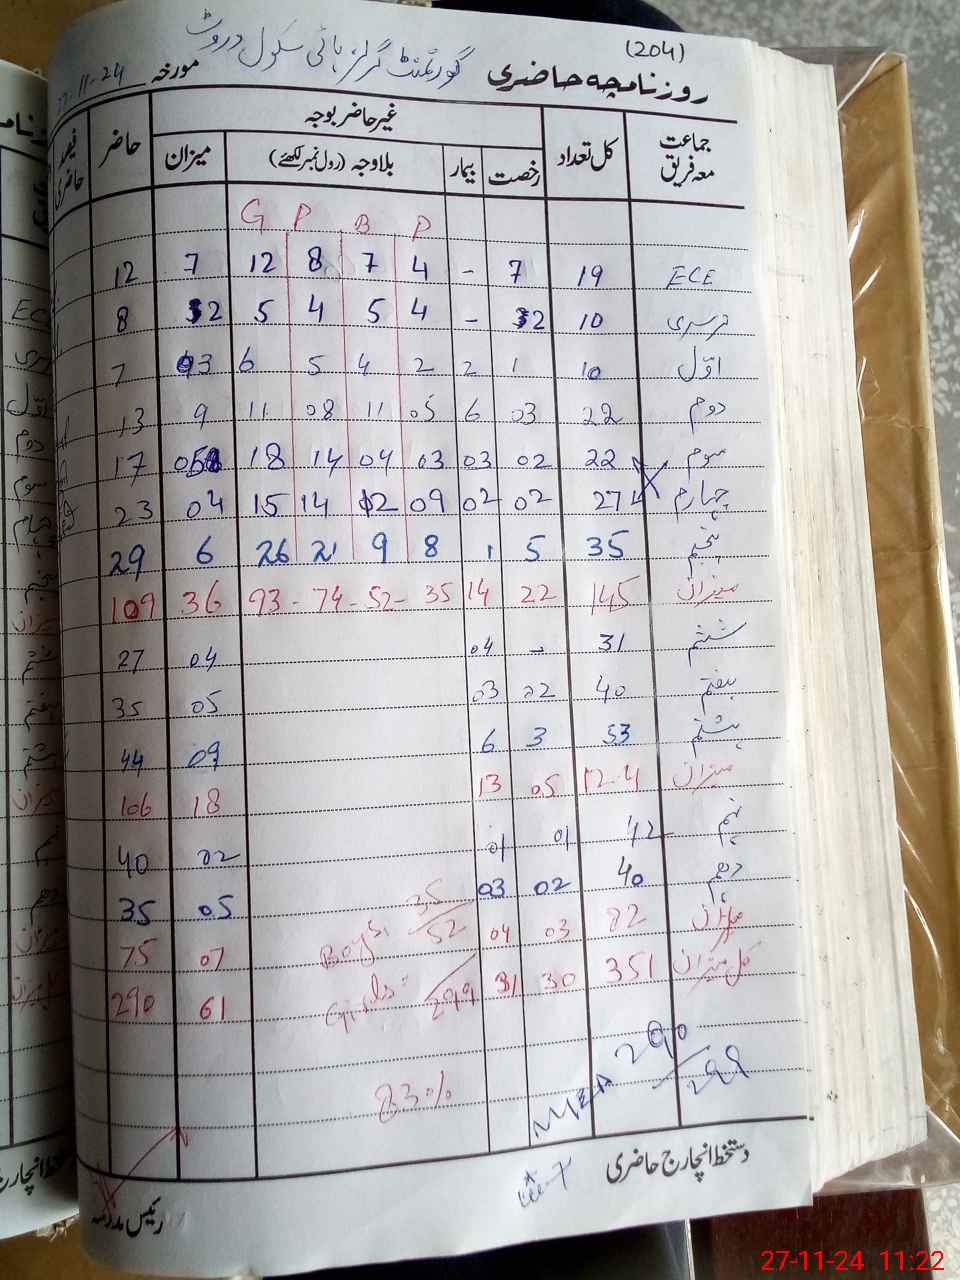 (204)
گورنمنٹ گرلز ہائی سکول دروٹ
روزنامچہ حاضری مورخہ 27-11-24
جماعت معہ فریق کل تعداد غیر حاضر بوجہ حاضر فیصد حاضری
رخصت بیمار بلاوجہ (رول نمبر لکھئے) میزان
G P B P
ECE 19 7 - 4 7 8 12 7 12
نرسری 10 2 - 4 5 4 5 2 8
اوّل 10 1 2 2 4 5 6 3 7
دوم 22 03 6 05 11 08 11 9 13
سوم 22 02 03 03 04 14 18 05 17
چہارم 27 02 02 09 12 14 15 04 23
پنجم 35 5 1 8 9 21 26 6 29
میزان 145 22 14 35 - 52 - 74 - 93 36 109
ششم 31 - 04 04 27
ہفتم 40 02 03 05 35
ہشتم 53 3 6 09 44
میزان 124 05 13 18 106
نہم 42 01 01 02 40
دہم 40 02 03 05 35
میزان 82 03 04 07 75
کل میزان 351 30 31 61 290
Boys: 35/52
Girls: /299
83%
MEA 290/
دستخط انچارج حاضری
رئیس مدرسہ
27-11-24 11:22